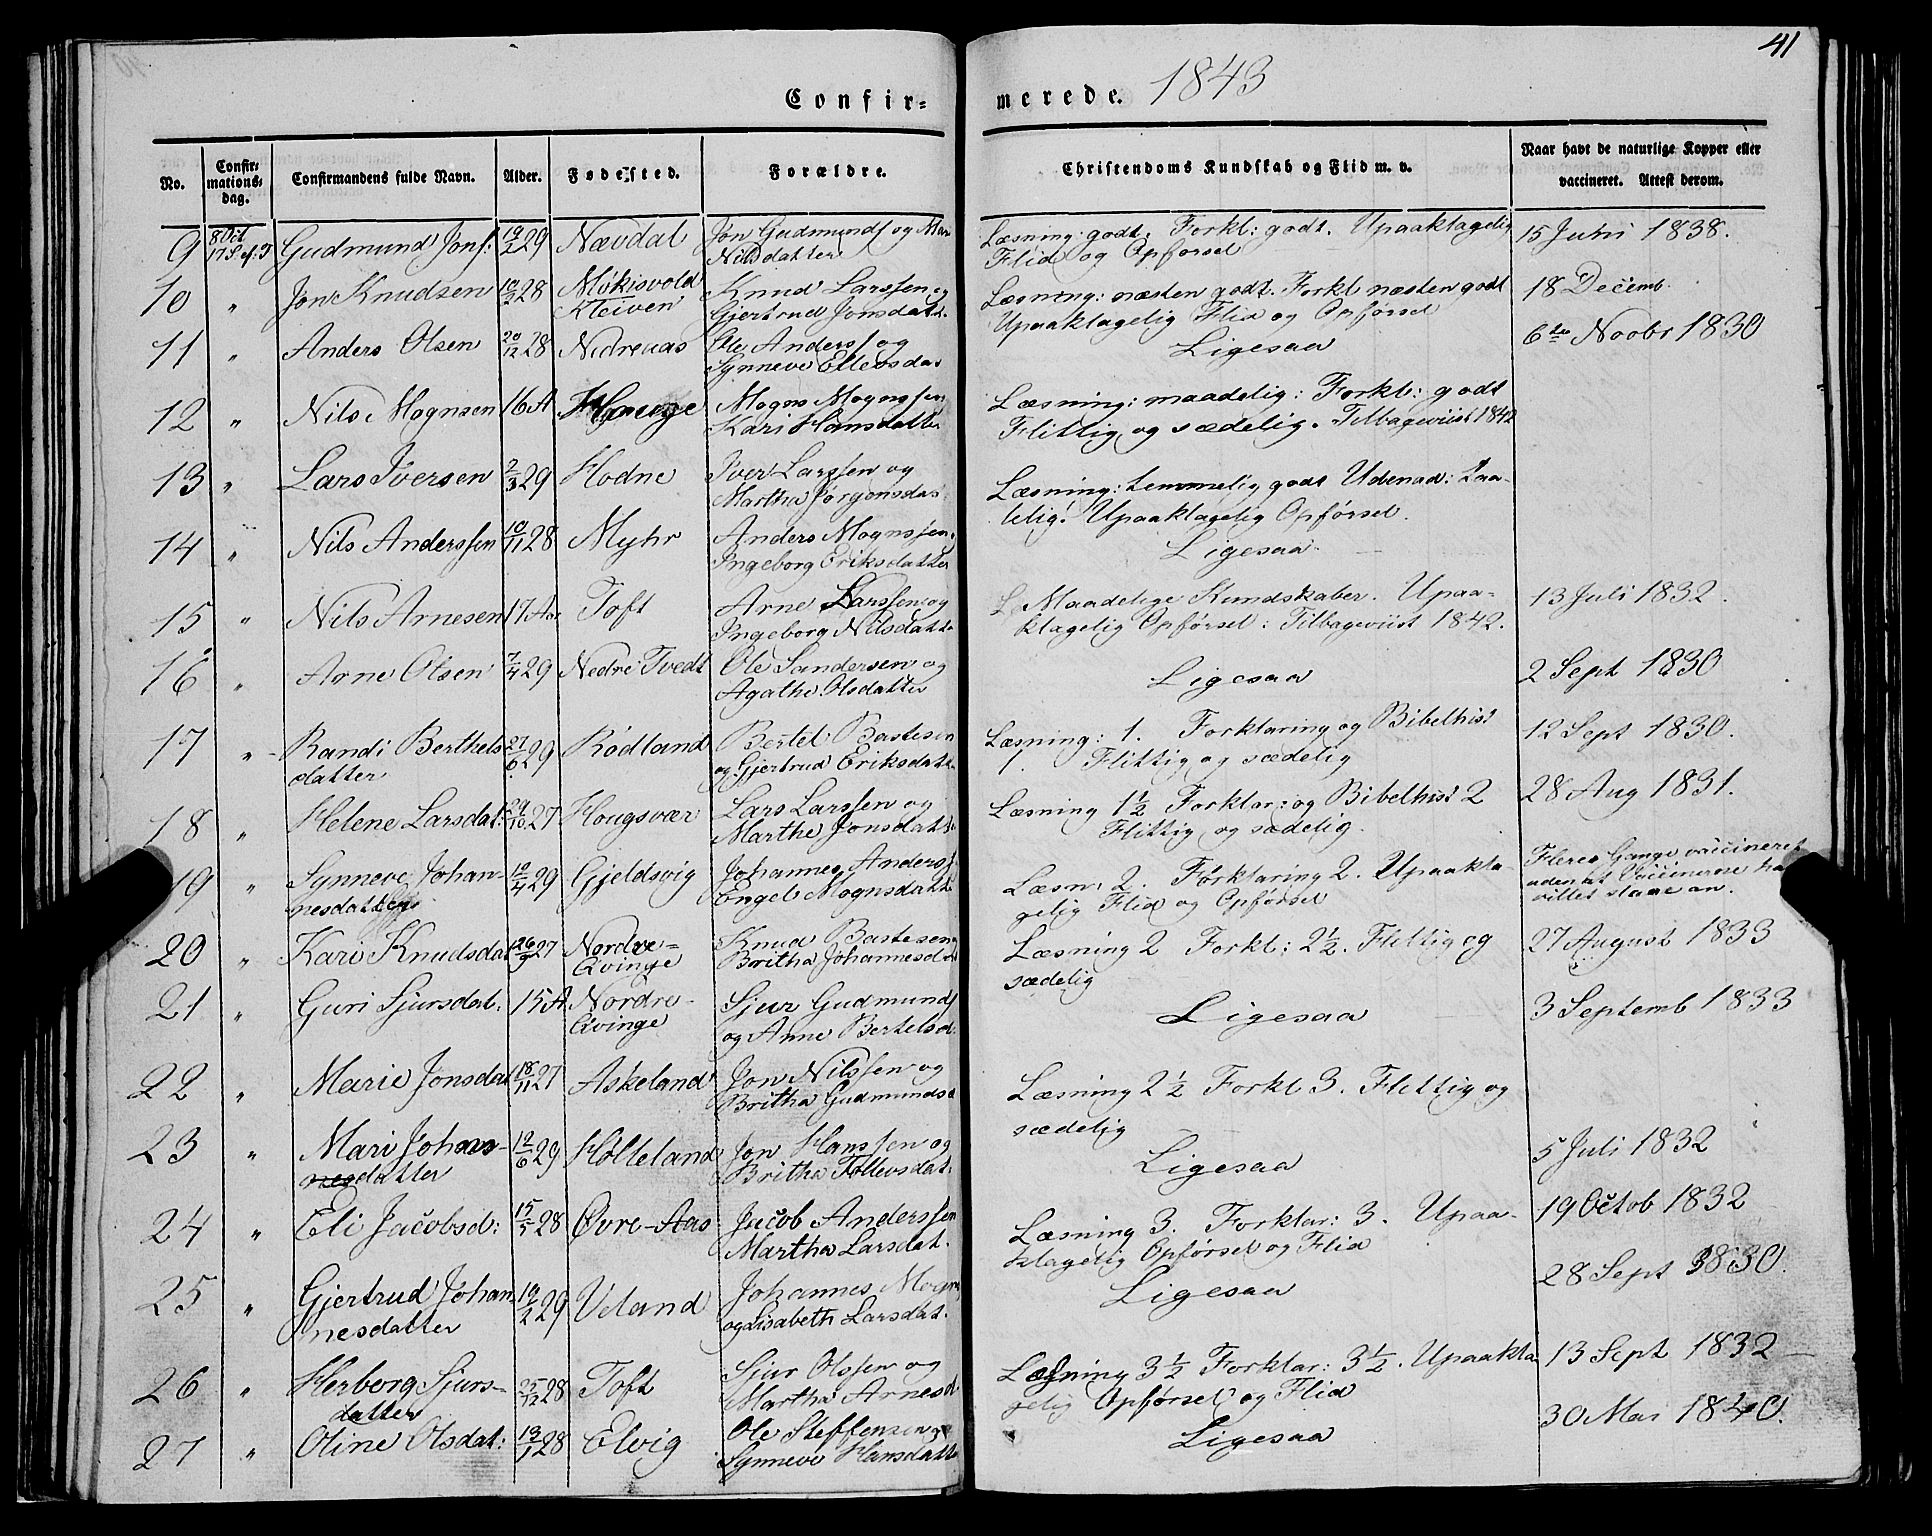 41
Confir=
merede. 1843
No.
Confir=
mations=
dag.
Confirmandens fulde Navn.
Alder.
Fødested.
Forældre.
Christendoms Kundskab og Flid m. v.
Naar havt de naturlige Kopper eller
vaccineret. Attest derom.
9 8 Oct Gudmund Jons: 29 Nævdal Jon Gudmunds og
Nilsdatter
Læsning: godt. Forkl: godt. Upaaklagelig 15 Juni 1838.
Flid og Opførsel
10 " Jon Knudsen 28 Møkisvold Knud Larssen og
Kleiven Gjertrud Jonsdatt.
Læsning: næsten godt. Forkl næsten godt 18 Decemb.
Upaaklagelig Flid og Opførsel
11 " Anders Olsen 20/12 28 Nedreaas Ole Anders og
Synneve
Ligesaa 6te Novbr 1830
12 " Nils Mognsen 16 A Hauge Mogns Mognssen
Kari Hansdatter
Læsning: maadelig: Forkl: godt
Flittig og sædelig. Tilbageviist 1842
13 " Lars Iversen 2/3 29 Hodne Iver Larssen og
Martha Jørgensdat
Læsning: temmelig godt Udenad: Taa-
lelig. Upaaklagelig Opførsel.
14 " Nils Anderssen 10/11 28 Myhr Anders Mognssen
Ingeborg Eriksdatter
Ligesaa
15 " Nils Arnesen 17 Aar Toft Arne Larssen og
Ingeborg Nilsdatt.
Maadelige Kundskaber. Upaa- 13 Juli 1832.
klagelig Opførsel: Tilbageviist 1842.
16 " Arne Olsen 7/4 29 Nedre Tvedt Ole Sandersen og
Agathe Olsdatter
Ligesaa 2 Sept 1830
17 " Randi Berthels 27/6 29 Rødland Bertel Bastesen
datter og Gjertrud Eriksdatt
Læsning: 1. Forklaring og Bibelhist 12 Sept 1830.
1. Flittig og sædelig
18 " Helene Larsdat: 29/10 27 Hougsvær Lars Larssen og
Marthe Jonsdatt
Læsning 1½ Forklar: og Bibelhist 2 28 Aug 1831.
Flittig og sædelig.
19 " Synneve Johan- 10/4 29 Gjeldsvig Johannes Anders
nesdatter Engel Mognsdatt
Læsn: 2. Forklaring 2. Upaakla Flere Gange vaccineret
gelig Flid og Opførsel uden at Vaccinerne ha
villet slaae an.
20 " Kari Knudsdat 27 Nordre= Knud Bastesen
Qvinge Britha Johannesd
Læsning 2 Forkl: 2½. Flittig og 27 August 1833
sædelig
21 " Guri Sjursdat: 15 A Nordre- Sjur Gudmunds
Qvinge og Anne Bertelsd
Ligesaa 3 Septemb 1833
22 " Marie Jonsdat 18/11 27 Askeland Jon Nilssen og
Britha Gudmunds
Læsning 2½ Forkl 3. Flittig og
sædelig
23 " Mari Johan- 12/6 29 Hølleland Jon Hanssen og
nesdatter Britha Tollevsdat.
Ligesaa 5 Juli 1832
24 " Eli Jacobsd: 28 Øvre-Aas Jacob Anderssen
Martha Larsdat.
Læsning 3. Forklar: 3. Upaa- 19 Octob 1832
klagelig Opførsel og Flid
25 " Gjertrud Johan 29 Veland Johannes Mogns
nesdatter og Lisabeth Larsdat.
Ligesaa 28 Sept 1830.
26 " Herborg Sjurs- 25/12 28 Toft Sjur Olssen og
datter Martha Arnesd
Læsning 3½ Forklar: 3½. Upaakla 13 Sept 1832
gelig Opførsel og Flid
27 " Oline Olsdat: 28 Elvig Ole Steffensen og
Synneve Hansdatte
Ligesaa 30 Mai 1840.